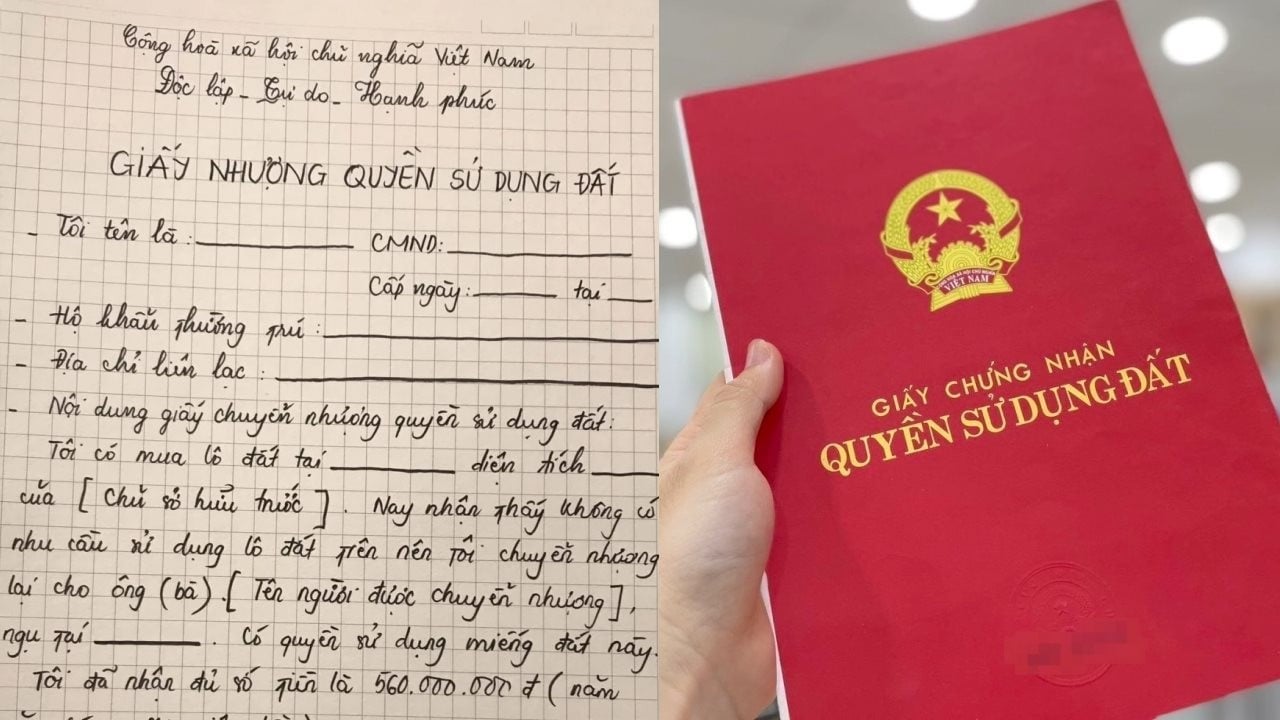 Cộng hoà xã hội chủ nghĩa Việt Nam
Độc lập - Tự do - Hạnh phúc
GIẤY NHƯỢNG QUYỀN SỬ DỤNG ĐẤT
- Tôi tên là : CMND:
Cấp ngày: tại
- Hộ khẩu thường trú :
- Địa chỉ liên lạc :
- Nội dung giấy chuyển nhượng quyền sử dụng đất:
Tôi có mua lô đất tại diện tích
của [ Chủ sở hữu trước ]. Nay nhận thấy không có
nhu cầu sử dụng lô đất trên nên tôi chuyển nhượng
lại cho ông (bà) .[ Tên người được chuyển nhượng ],
ngụ tại . Có quyền sử dụng miếng đất này.
Tôi đã nhận đủ số tiền là 560.000.000 đ ( năm
VIỆT NAM
GIẤY CHỨNG NHẬN
QUYỀN SỬ DỤNG ĐẤT